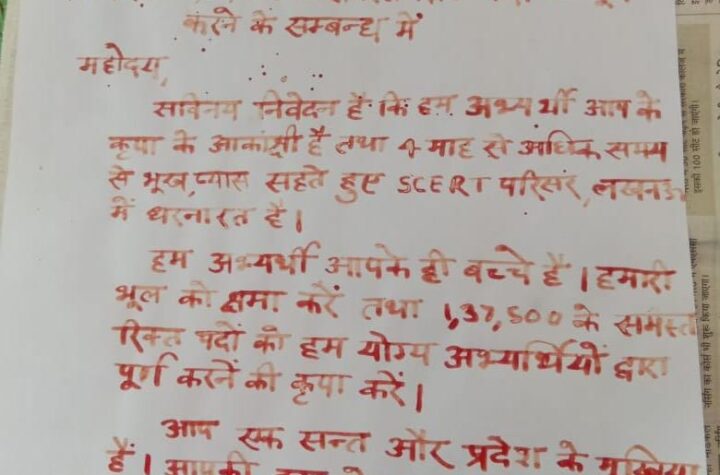 करने के सम्बन्ध में
महोदय,
सविनय निवेदन है कि हम अभ्यर्थी आप के
कृपा के आकांक्षी है तथा 4 माह से अधिक समय
से भूख, प्यास सहते हुए SCERT परिसर, लखनऊ
में धरनारत है।
हम अभ्यर्थी आपके ही बच्चे है। हमारी
भूल को क्षमा करें तथा 1,37,500 के समस्त
रिक्त पदों को हम योग्य अभ्यर्थियों द्वारा
पूर्ण करने की कृपा करें।
आप एक सन्त और प्रदेश के मुखिया
हैं। आपकी